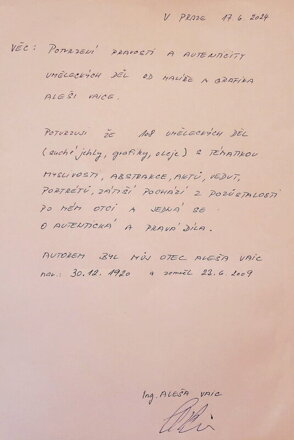 V PRAZE 17.6.2024
VĚC: POTVRZENÍ PRAVOSTI A AUTENTICITY
UMĚLECKÝCH DĚL OD MALÍŘE A GRAFIKA
ALEŠI VAICE.
POTVRZUJI ŽE 108 UMĚLECKÝCH DĚL
(suché jehly, grafiky, oleje) S TÉMATIKOU
MYSLIVOSTI, ABSTRAKCE, AKTŮ, VEDUT,
PORTRÉTŮ, ZÁTIŠÍ POCHÁZÍ Z POZŮSTALOSTI
PO MÉM OTCI A JEDNÁ SE
O AUTENTICKÁ A PRAVÁ DÍLA.
AUTOREM BYL MŮJ OTEC ALEŠA VAIC
nar.: 30.12.1920 a zemřel 23.6.2009
Ing. ALEŠA VAIC